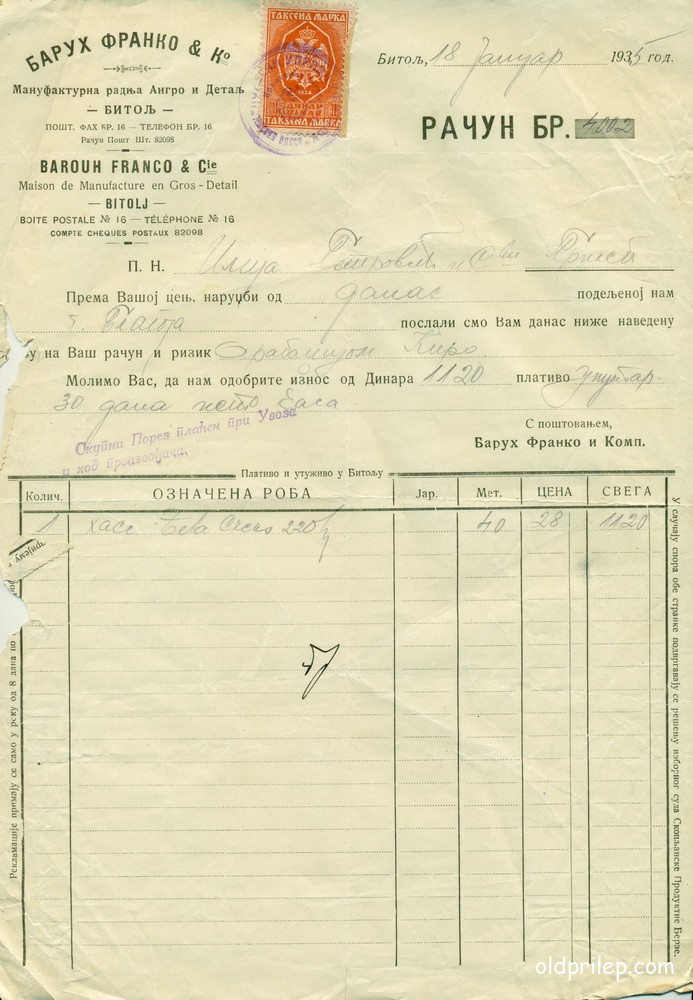 БАРУХ ФРАНКО & Ко
Мануфактурна радња Ангро и Детаљ
— БИТОЉ —
ПОШТ. ФАХ БР. 16 — ТЕЛЕФОН БР. 16
Рачун Пошт Шт. 82098
BAROUH FRANCO & Cie
Maison de Manufacture en Gros - Detail
— BITOLJ —
BOITE POSTALE № 16 — TÉLÉPHONE № 16
COMPTE CHEQUES POSTAUX 82098
ТАКСЕНА МАРКА
1934
ТАКСЕНА МАРКА
Битољ, 18 Јануар 1935 год.
РАЧУН БР. 4002
П. Н. Илија Петровић и
Према Вашој цењ. наруџби од данас подељеној нам
послали смо Вам данас ниже наведену
на Ваш рачун и ризик Киро.
Молимо Вас, да нам одобрите износ од Динара 1120 плативо
30 дана
С поштовањем,
Барух Франко и Комп.
Скупни Порез плаћен при Увоза
и код произвођача.
Плативо и утуживо у Битољу
Колич. ОЗНАЧЕНА РОБА Јар. Мет. ЦЕНА СВЕГА
1 хасе 220 40 28 1120
Рекламације примају се само у року од 8 дана по
пријему
У случају спора обе странке подвргавају се решењу изборног суда Скопљанске Продуктне Берзе.
oldprilep.com